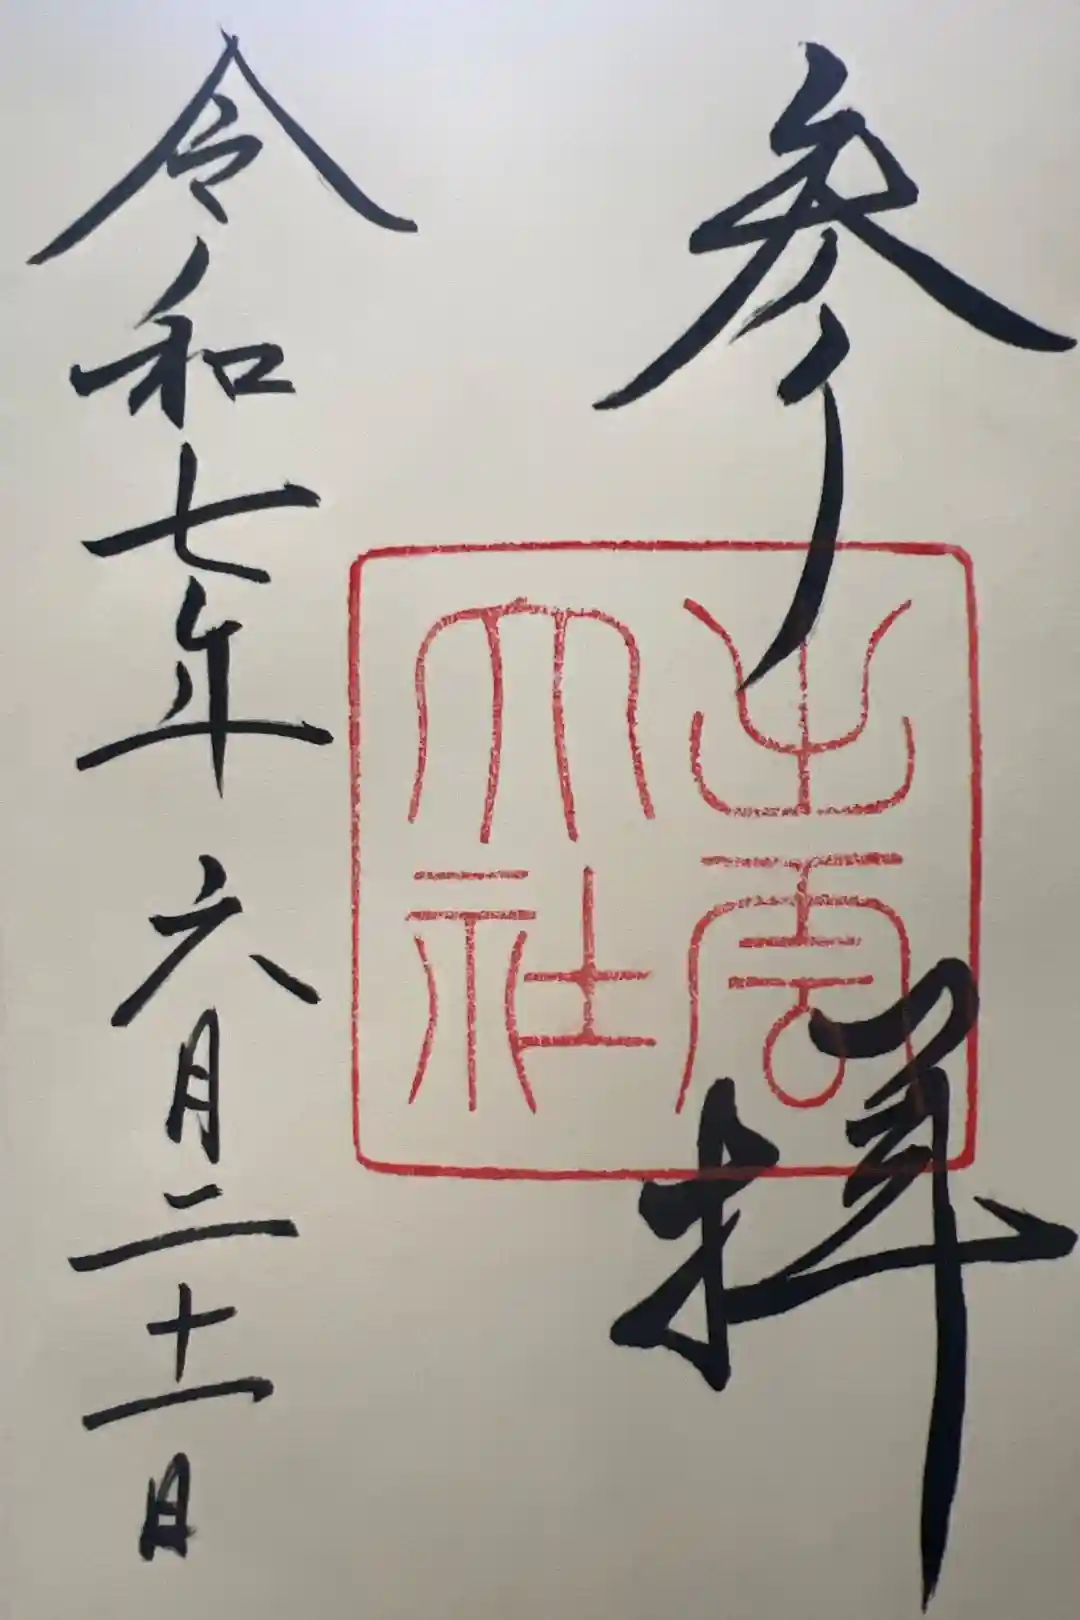 参拝
出雲
大社
令和七年六月二十一日